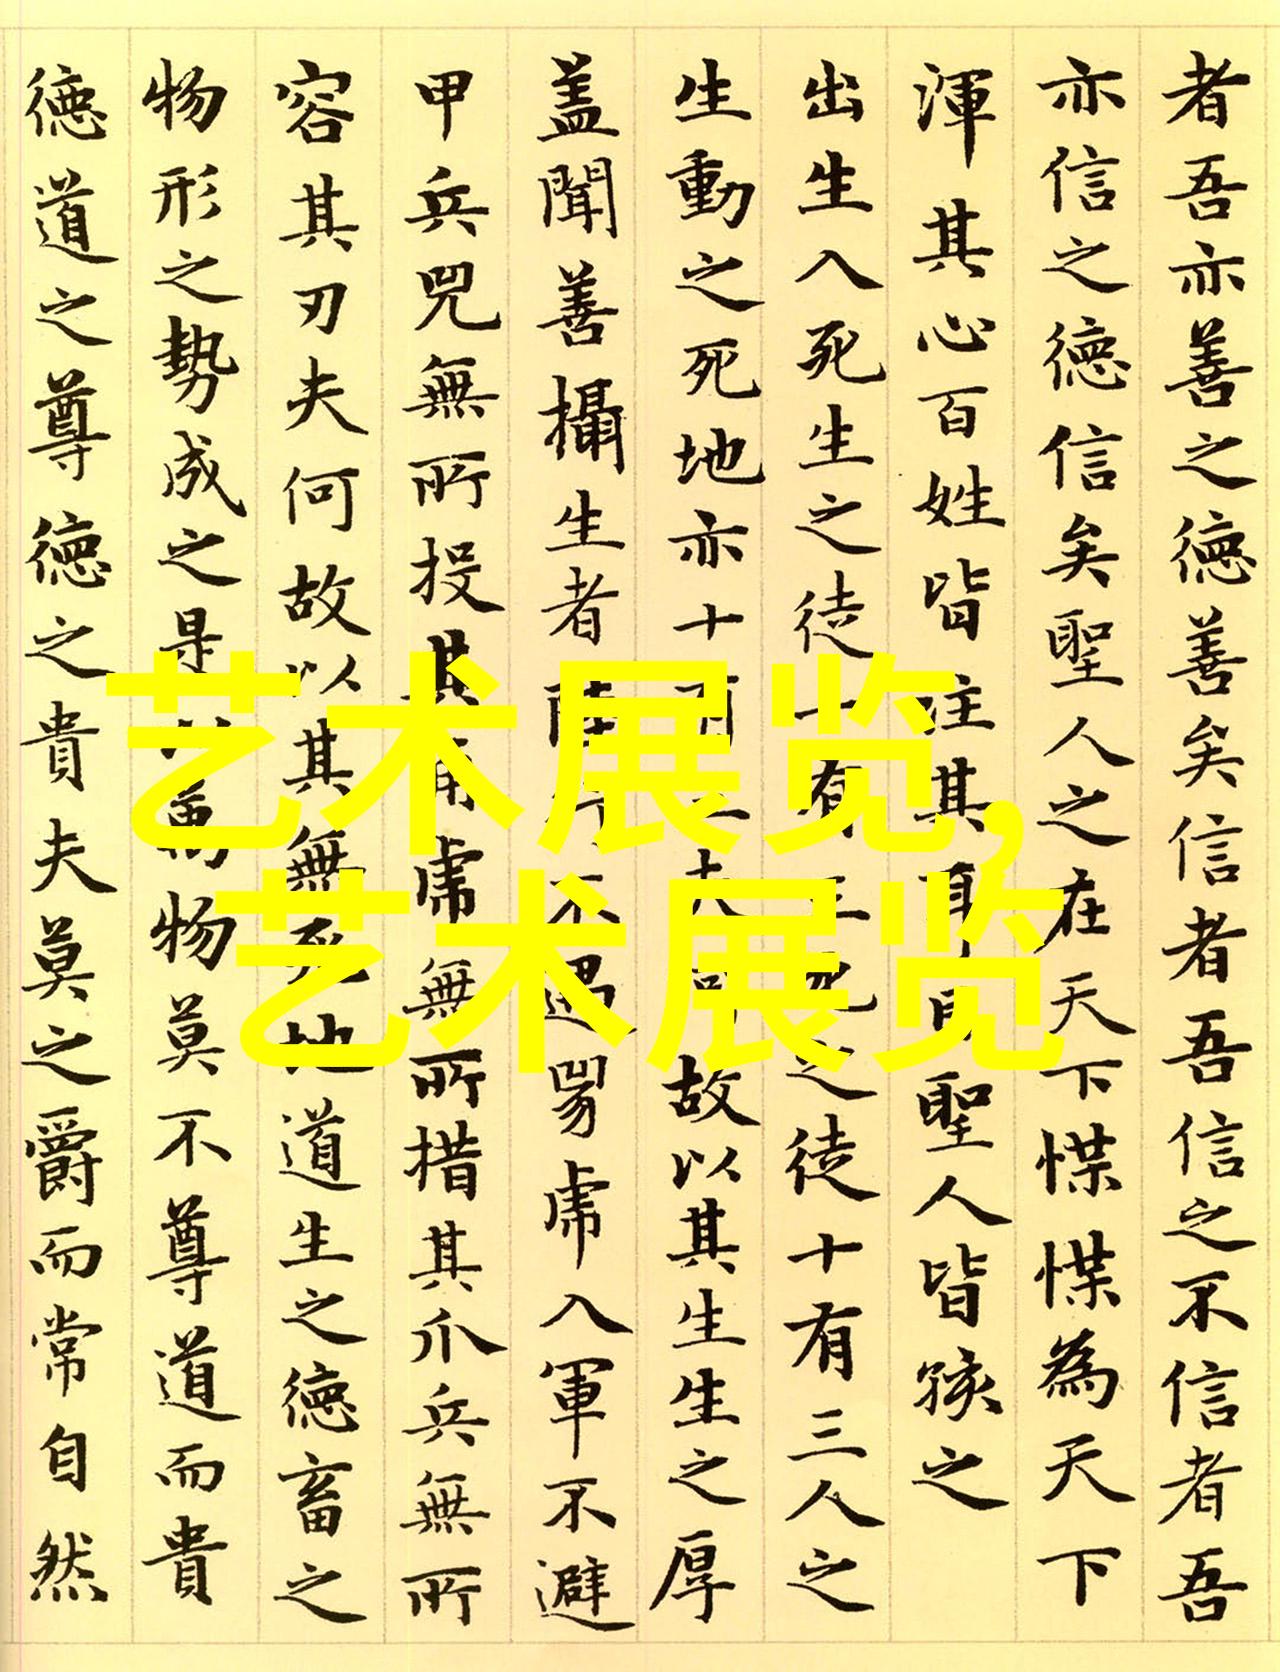 者吾亦善之徳善矣信者吾信之不信者吾
亦信之徳信矣聖人之在天下惵惵為天下
渾其心百姓皆注其耳目聖人皆孩之
出生入死生之徒十有三死之徒十有三人之
生動之死地亦十有三夫何故以其生生之厚
蓋聞善攝生者陸行不遇兕虎入軍不避
甲兵兕無所投其角虎無所措其爪兵無所
容其刃夫何故以其無死地道生之徳畜之
物形之勢成之是以萬物莫不尊道而貴
徳道之尊徳之貴夫莫之爵而常自然
艺术展览,
艺术展览